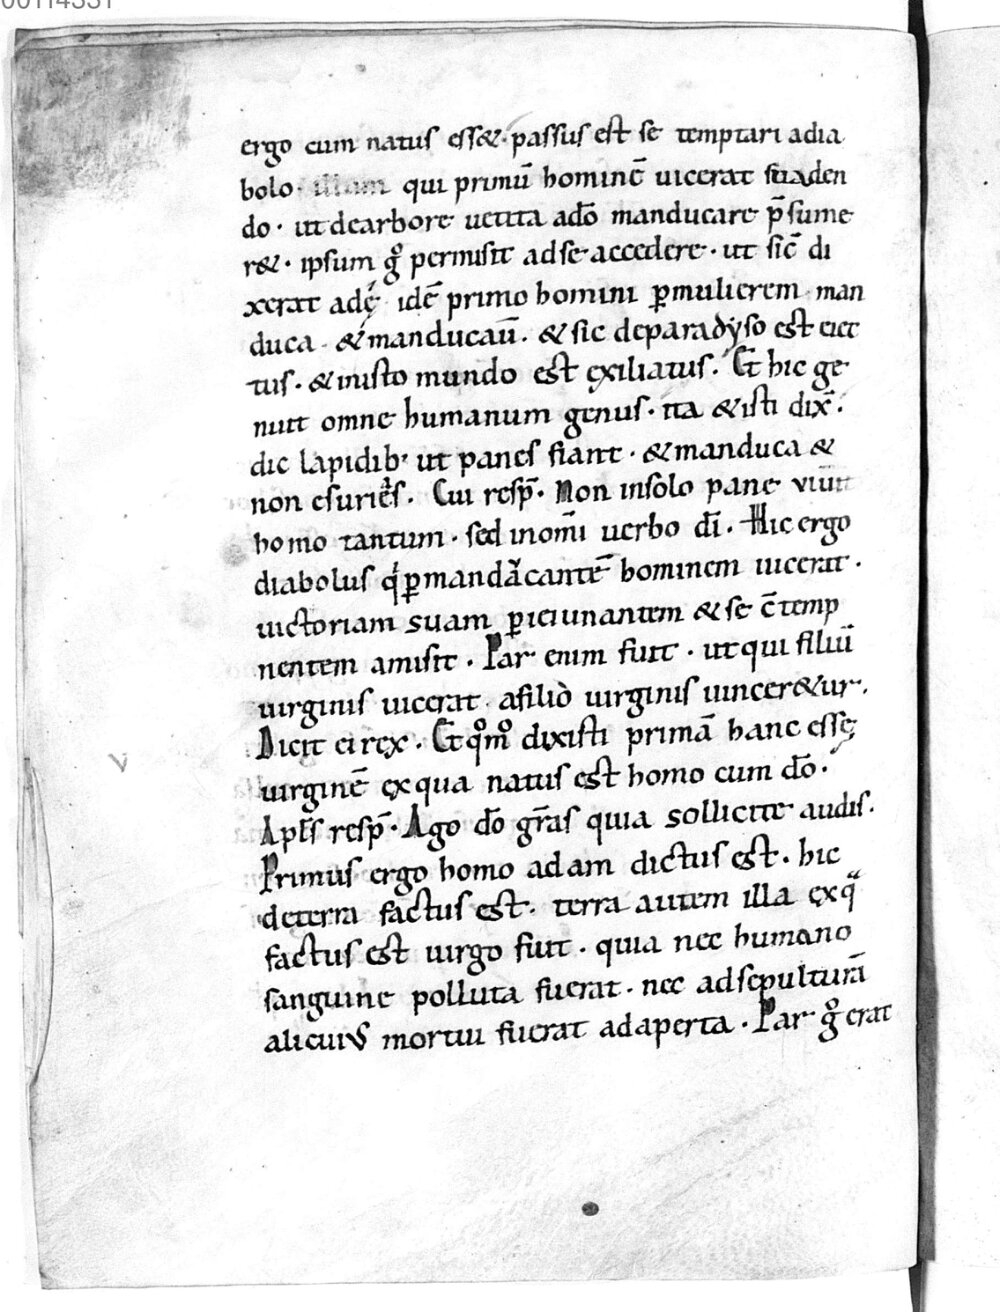 00114331
ergo cum natus ess&· passus est se temptari adia
bolo· illam qui primū hominē uicerat suaden
do· ut dearbore uetita adō manducare p̄sume
r&· ipsum gͦ permisit adse accedere· ut sic̄ di
xerat adę idē primo homini ꝑmulierem man
duca· & manducauː̄· & sic deparadyso est eiec
tus· & inisto mundo est exiliatus· Et hic ge
nuit omne humanum genus· ita & isti dix̄·
dic lapidib' ut panes fiant· & manduca &
non esuries· Cui resp̄· Non insolo pane viuit
homo tantum· sed inom̄i uerbo dī· Hic ergo
diabolus q ꝑmanducantē hominem uicerat·
uictoriam suam ꝑieiunantem & se c̄temp
nentem amisit· Par enim fuit· ut qui filiū
uirginis uicerat afilio uirginis uincer&ur·
Dicit ei rex· Et qͦmͦ dixisti primā hanc esse
uirginē ex qua natus est homo cum dō·
v
Apl̄s resp̄· Ago dō gr̄as quia sollicite audis·
Primus ergo homo adam dictus est· hic
deterra factus est· terra autem illa exqᵃ
factus est uirgo fuit· quia nec humano
sanguine polluta fuerat· nec adsepulturā
alicuius mortui fuerat adaperta· Par gͦ erat